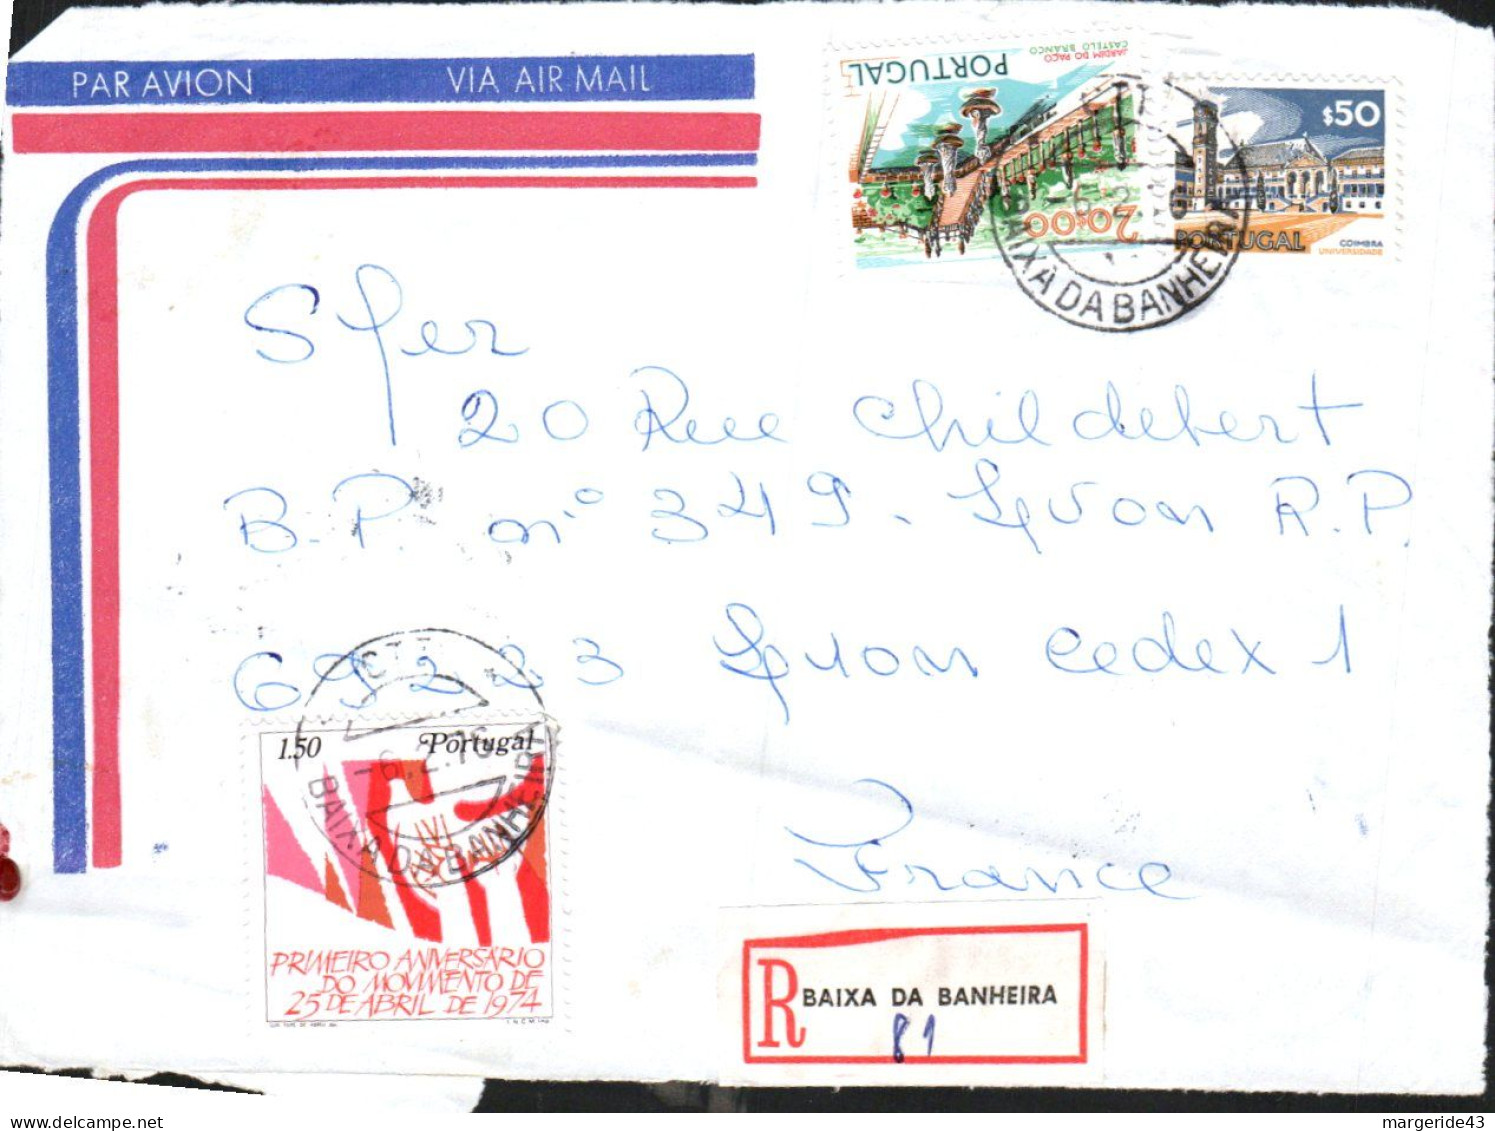 PAR AVION VIA AIR MAIL
PORTUGAL
JARDIM DO PAÇO
CASTELO BRANCO
20$00
$50
PORTUGAL
COIMBRA
UNIVERSIDADE
BAIXA DA BANHEIRA
Sfer
20 Rue Childebert
B.P. nº 349. Lyon R.P.
69223 Lyon Cedex 1
France
CTT
-6.2.76
BAIXA DA BANHEIRA
1.50 Portugal
PRIMEIRO ANIVERSÁRIO
DO MOVIMENTO DE
25 DE ABRIL DE 1974
R BAIXA DA BANHEIRA
81
delcampe.net
margeride43